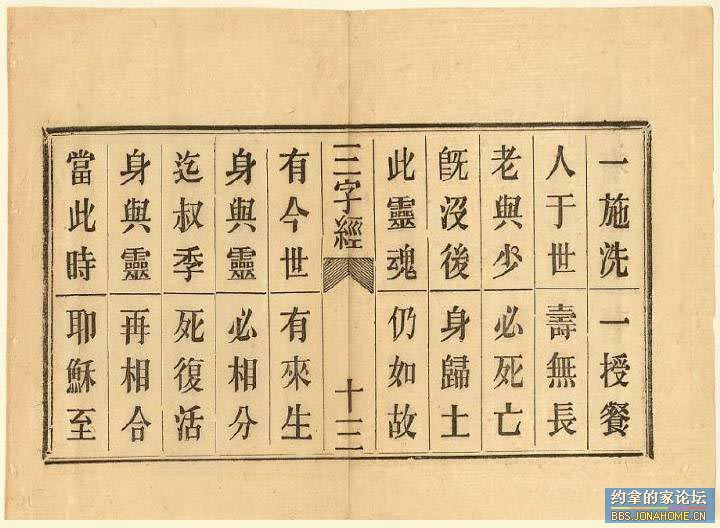 一施洗 一授餐
人于世 壽無長
老與少 必死亡
旣沒後 身歸土
此靈魂 仍如故
三字經 十三
有今世 有來生
身與靈 必相分
迄叔季 死復活
身與靈 再相合
當此時 耶穌至
约拿的家论坛
BBS.JONAHOME.CN